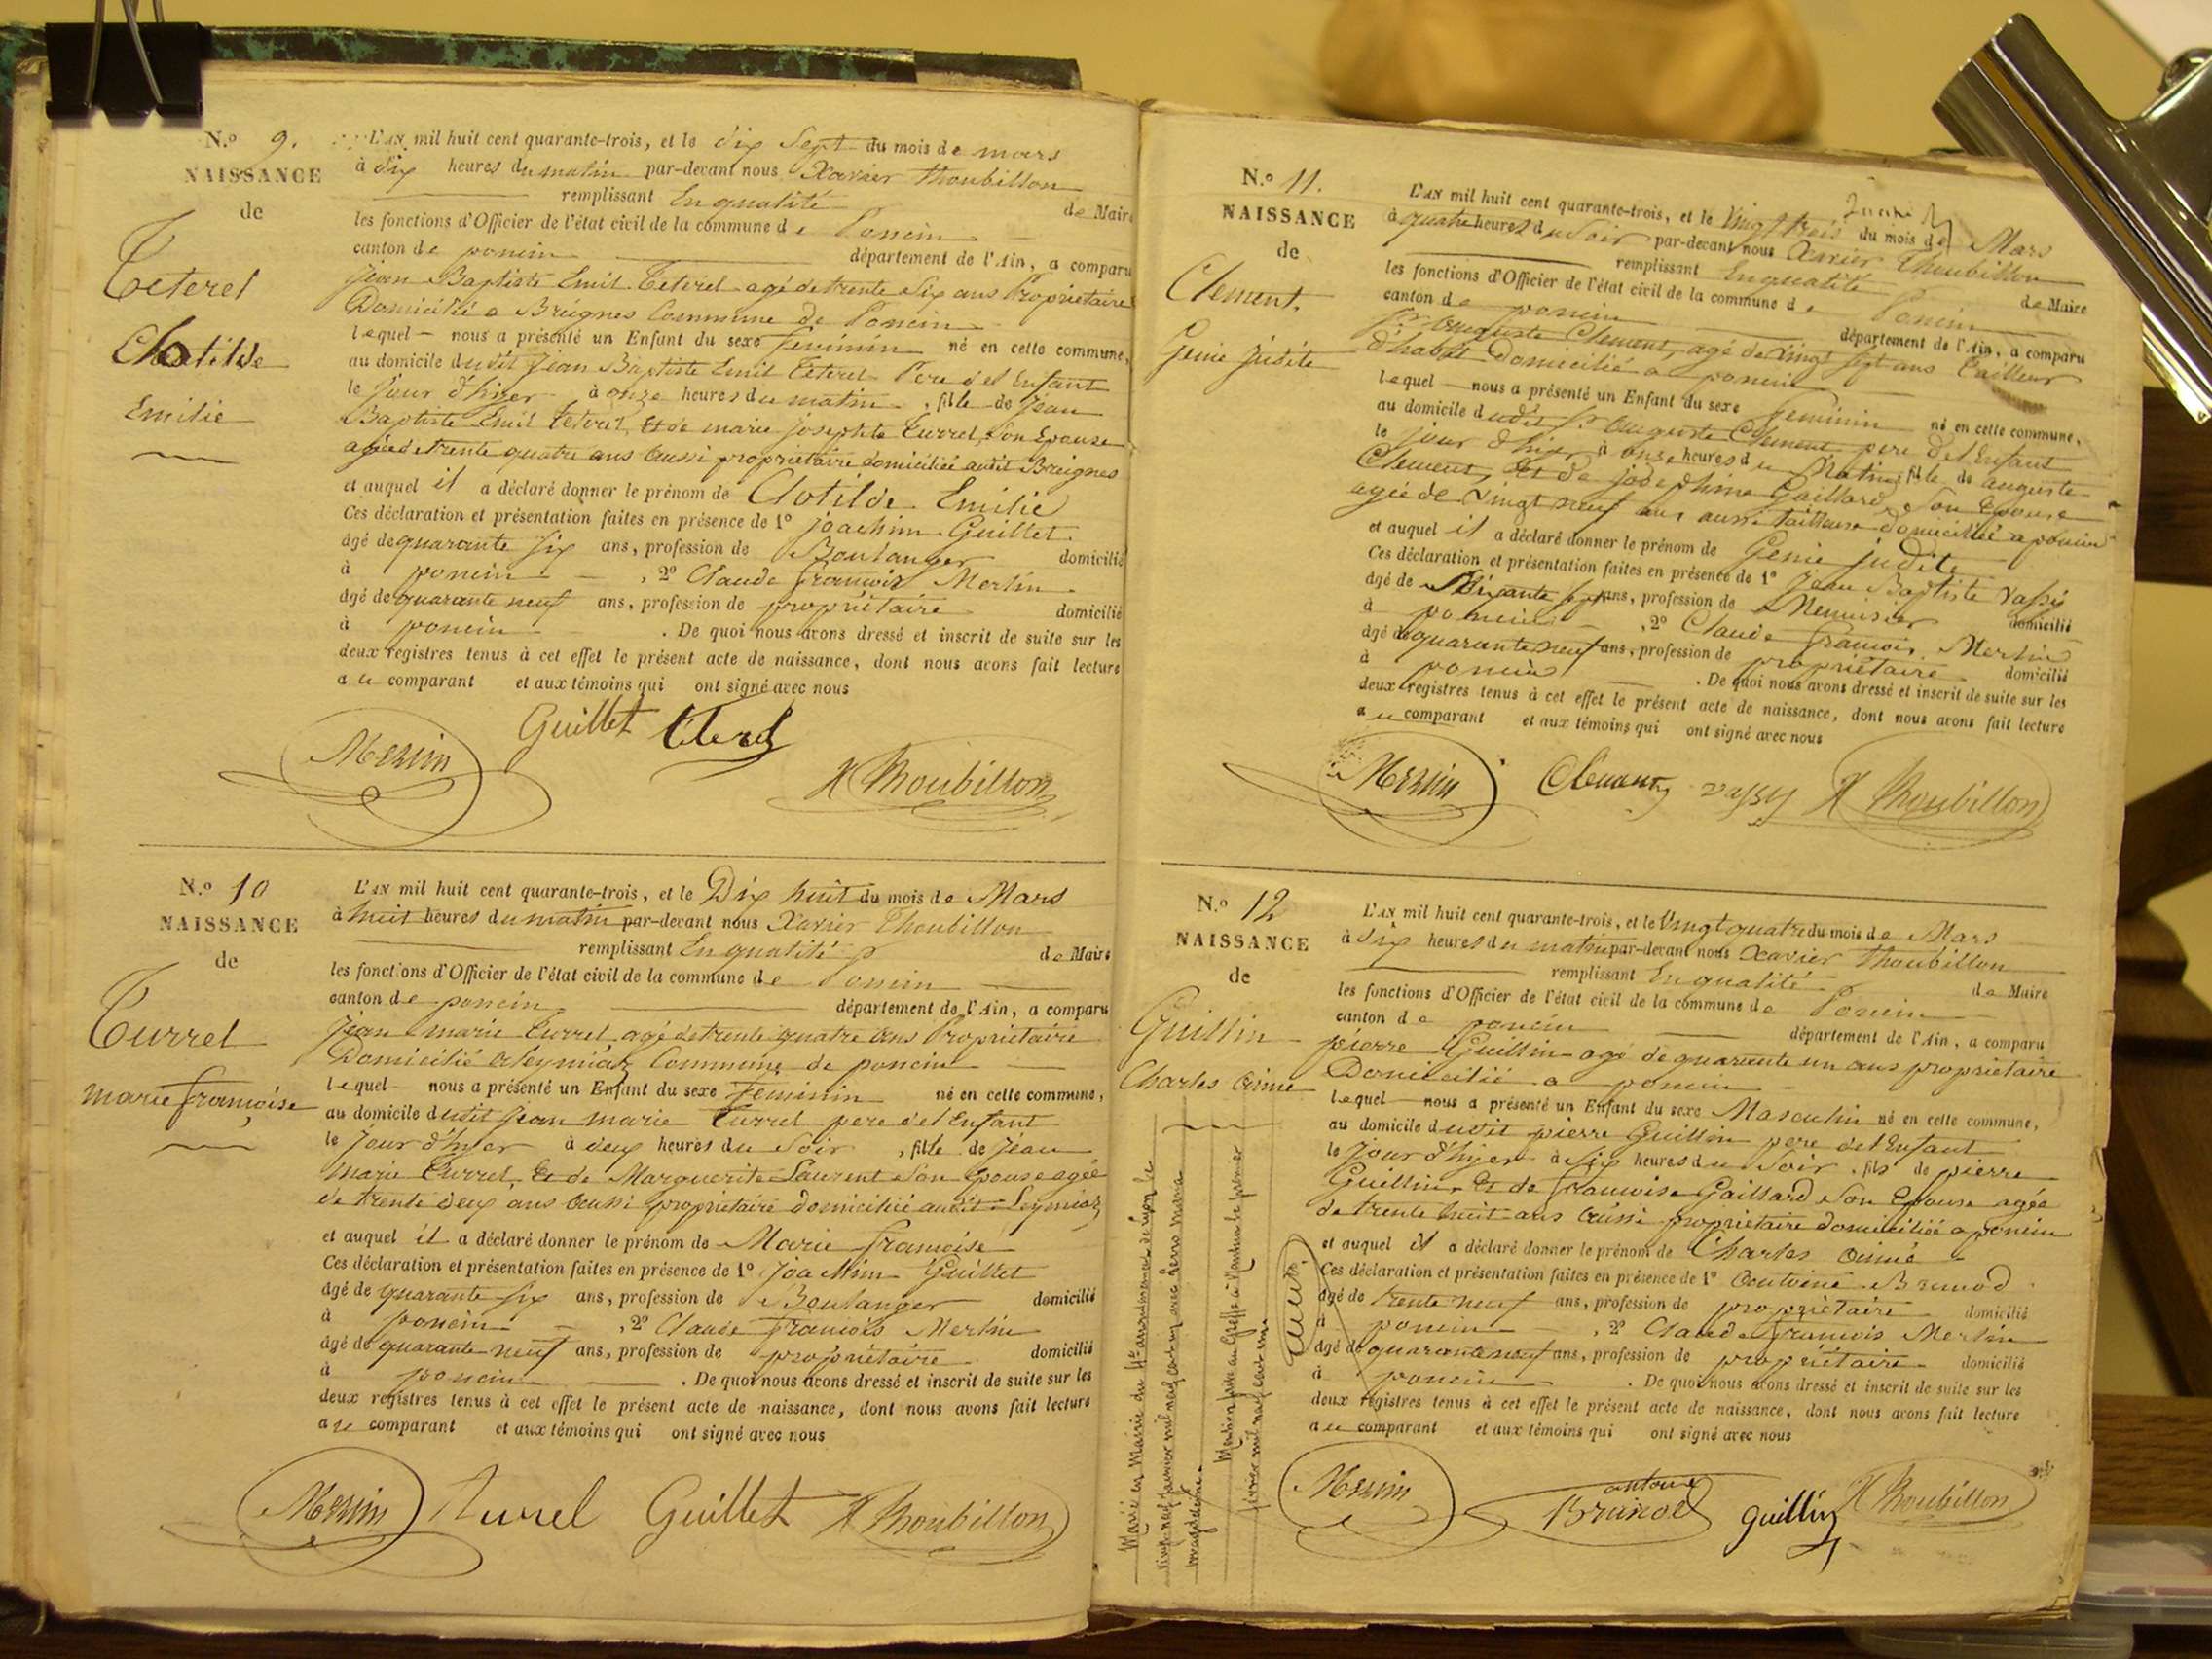 N.º 9.
NAISSANCE
de
Teterel
Clotilde
Emilie
L'AN mil huit cent quarante-trois, et le dix Sept du mois de mars
à Six heures du matin par-devant nous Xavier Thoubillon
remplissant En qualité de Maire
les fonctions d'Officier de l'état civil de la commune de Poncin
canton de poncin département de l'Ain, a comparu
Jean Baptiste Emil Teterel agé de trente Six ans Propriétaire
Domicilié a Breignes Commune de Poncin
lequel nous a présenté un Enfant du sexe feminin né en cette commune,
au domicile dudit Jean Baptiste Emil Teterel Pere del Enfant
le Jour d'hyer à onze heures du matin, fille de Jean
Baptiste Emil Teterel, Et de marie josephte Turrel, Son Epouse
agée de trente quatre ans aussi propriétaire domiciliée audit Breignes
et auquel il a déclaré donner le prénom de Clotilde Emilie
Ces déclaration et présentation faites en présence de 1º joachim Guillet
âgé de quarante six ans, profession de Boulanger domicilié
à poncin, 2º Claude francois Merlin
âgé de quarante neuf ans, profession de propriétaire domicilié
à poncin. De quoi nous avons dressé et inscrit de suite sur les
deux registres tenus à cet effet le présent acte de naissance, dont nous avons fait lecture
au comparant et aux témoins qui ont signé avec nous
Merlin Guillet Teterel X Thoubillon
N.º 10
NAISSANCE
de
Turrel
marie françoise
L'AN mil huit cent quarante-trois, et le Dix huit du mois de Mars
à huit heures du matin par-devant nous Xavier Thoubillon
remplissant En qualité de Maire
les fonctions d'Officier de l'état civil de la commune de Poncin
canton de poncin département de l'Ain, a comparu
Jean marie Turrel agé de trente quatre ans Propriétaire
Domicilié a Leymiat Commune de poncin
lequel nous a présenté un Enfant du sexe feminin né en cette commune,
au domicile dudit Jean marie Turrel pere del Enfant
le Jour d'hyer à deux heures du Soir, fille de Jean
marie Turrel, Et de Marguerite Laurent Son Epouse agée
de trente deux ans aussi propriétaire domiciliée audit Leymiat
et auquel il a déclaré donner le prénom de Marie francoise
Ces déclaration et présentation faites en présence de 1º Joachim Guillet
âgé de quarante six ans, profession de Boulanger domicilié
à poncin, 2º Claude francois Merlin
âgé de quarante neuf ans, profession de propriétaire domicilié
à poncin. De quoi nous avons dressé et inscrit de suite sur les
deux registres tenus à cet effet le présent acte de naissance, dont nous avons fait lecture
au comparant et aux témoins qui ont signé avec nous
Merlin Turrel Guillet X Thoubillon
N.º 11.
NAISSANCE
de
Clement.
Genie Judite
L'AN mil huit cent quarante-trois, et le Vingt trois du mois de Mars
à quatre heures du Soir par-devant nous Xavier Thoubillon
remplissant En qualité de Maire
les fonctions d'Officier de l'état civil de la commune de Poncin
canton de poncin département de l'Ain, a comparu
Sr auguste Clement, agé de Vingt Sept ans Tailleur
d'habit Domicilié a poncin
lequel nous a présenté un Enfant du sexe feminin né en cette commune,
au domicile dudit Sr auguste Clement pere del Enfant
le jour d'hier à onze heures du Matin, fille de auguste
Clement, Et de josephine Gaillard, Son Epouse
agée de Vingt neuf ans aussi tailleuse domiciliée a poncin
et auquel il a déclaré donner le prénom de Genie judite
Ces déclaration et présentation faites en présence de 1º Jean Baptiste Vassy
âgé de ans, profession de Menuisier domicilié
à poncin, 2º Claude francois Merlin
âgé de quarante neuf ans, profession de propriétaire domicilié
à poncin. De quoi nous avons dressé et inscrit de suite sur les
deux registres tenus à cet effet le présent acte de naissance, dont nous avons fait lecture
au comparant et aux témoins qui ont signé avec nous
Merlin Clement vassy X Thoubillon
N.º 12
NAISSANCE
de
Guillin
Charles aimé
L'AN mil huit cent quarante-trois, et le Vingt quatre du mois de Mars
à Six heures du matin par-devant nous Xavier Thoubillon
remplissant En qualité de Maire
les fonctions d'Officier de l'état civil de la commune de Poncin
canton de poncin département de l'Ain, a comparu
pierre Guillin agé de quarante un ans propriétaire
Domicilié a poncin
lequel nous a présenté un Enfant du sexe Masculin né en cette commune,
au domicile dudit pierre Guillin pere del Enfant
le Jour d'hyer à Six heures du Soir, fils de pierre
Guillin, Et de francoise Gaillard Son Epouse agée
de trente huit ans aussi propriétaire domiciliée a poncin
et auquel il a déclaré donner le prénom de Charles aimé
Ces déclaration et présentation faites en présence de 1º antoine Brunod
âgé de trente neuf ans, profession de propriétaire domicilié
à poncin, 2º Claude francois Merlin
âgé de quarante neuf ans, profession de propriétaire domicilié
à poncin. De quoi nous avons dressé et inscrit de suite sur les
deux registres tenus à cet effet le présent acte de naissance, dont nous avons fait lecture
au comparant et aux témoins qui ont signé avec nous
Merlin antoine Brunod Guillin X Thoubillon
Marié en Mairie du 4e arrondissement de Lyon le
vingt neuf janvier mil neuf cent
Mention faite au Greffe à Nantua le premier
février mil neuf cent